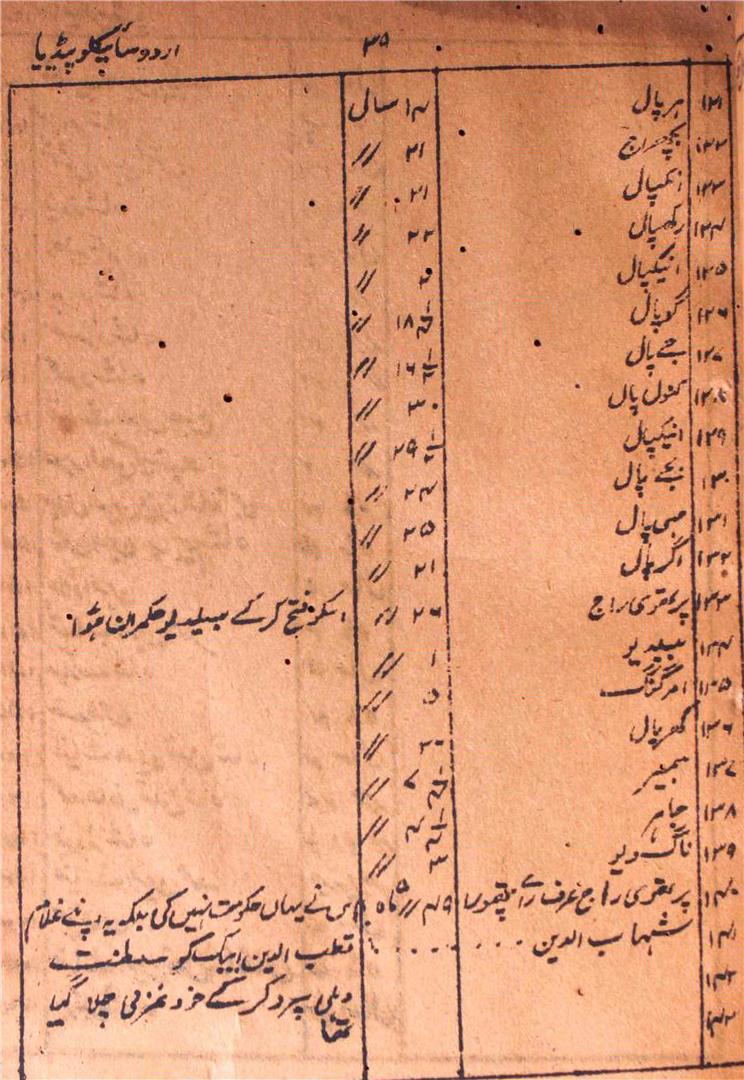 اردو سائیکلوپیڈیا ۳۵
۱۲۱ ہرپال ۱۴ سال
۱۲۲ بچھراج ۲۱ //
۱۲۳ ۲۱ //
۱۲۴ رکھپال ۲۲ //
۱۲۵ انیکپال //
۱۲۶ گوپال ۱۸ ۱/۴ //
۱۲۷ جے پال ۱۶ ۱/۲ //
۱۲۸ کنول پال ۳۰ //
۱۲۹ انیکپال ۲۹ ۱/۲ //
۱۳۰ بجے پال ۲۴ //
۱۳۱ مہی پال ۲۵ //
۱۳۲ اگرپال ۲۱ //
۱۳۳ پرتھری راج ۲۶ // اسکو فتح کرکے بیلدیو حکمران ہؤا
۱۳۴ بیلدیو ۱ //
۱۳۵ امرگنگ ۵ //
۱۳۶ کھرپال ۲۰ //
۱۳۷ ہمیر //
۱۳۸ جاہر //
۱۳۹ ناگ دیو ۳ //
۱۴۰ پرتھری راج عرف رائے پتھورا ۴۹ // ۵ ماہ
۱۴۱ شہاب الدین . . . . . . . . اس نے یہاں حکومت نہیں کی بلکہ یہ اپنے غلام
۱۴۲ قطب الدین ایبک کو سلطنت
۱۴۳ دہلی سپرد کرکے خود غزنی چلا گیا
تھا